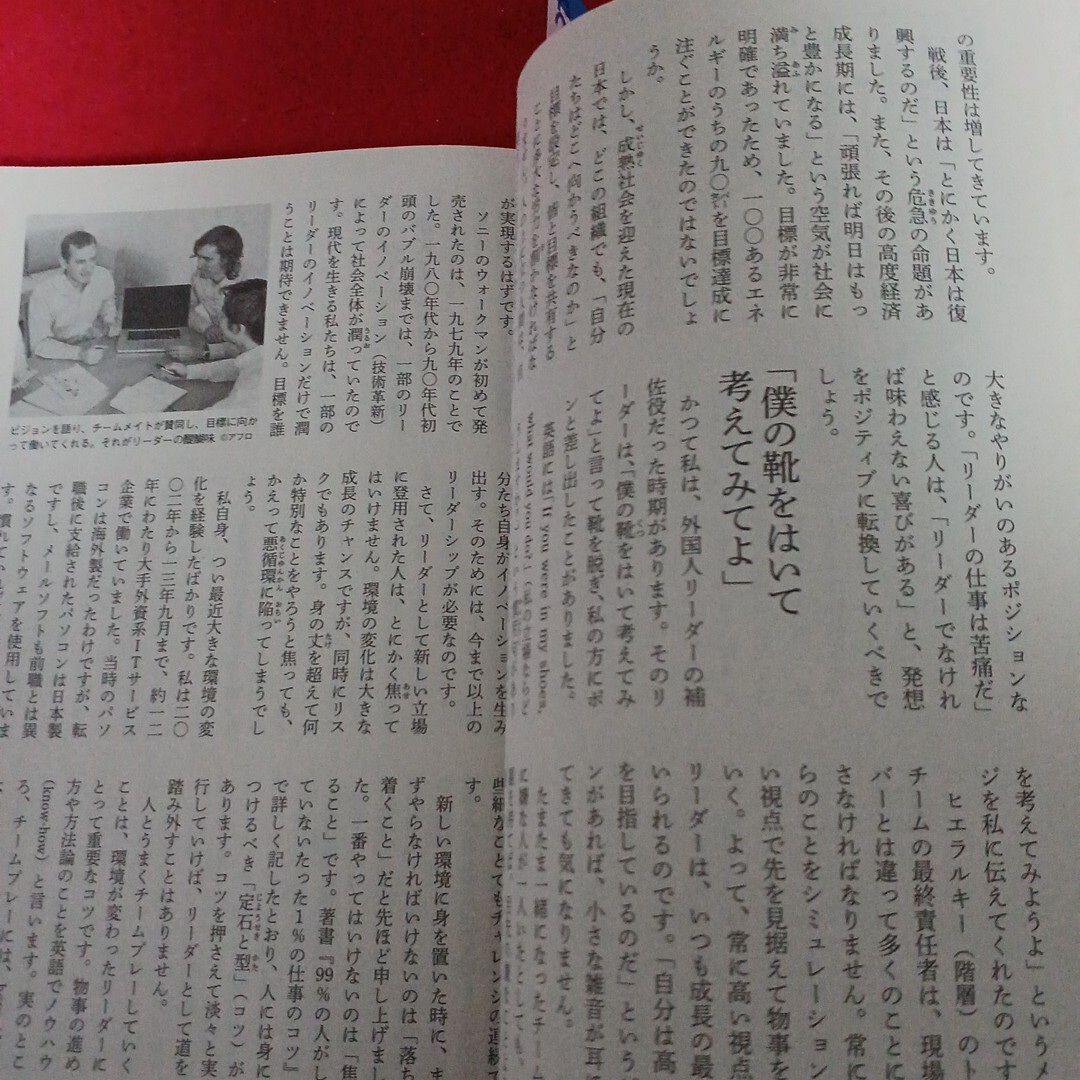 の重要性は増してきています。
戦後、日本は「とにかく日本は復
興するのだ」という危急の命題があ
りました。また、その後の高度経済
成長期には、「頑張れば明日はもっ
と豊かになる」という空気が社会に
満ち溢れていました。目標が非常に
明確であったため、一〇〇あるエネ
ルギーのうちの九〇%を目標達成に
注ぐことができたのではないでしょ
うか。
しかし、成熟社会を迎えた現在の
日本では、どこの組織でも、「自分
たちはどこへ向かうべきなのか」と
目標を設定し、皆と目標を共有する
大きなやりがいのあるポジションな
のです。「リーダーの仕事は苦痛だ」
と感じる人は、「リーダーでなけれ
ば味わえない喜びがある」と、発想
をポジティブに転換していくべきで
しょう。
「僕の靴をはいて
考えてみてよ」
かつて私は、外国人リーダーの補
佐役だった時期があります。そのリ
ーダーは、「僕の靴をはいて考えてみ
てよ」と言って靴を脱ぎ、私の方にポ
ンと差し出したことがありました。
英語には「If you were in my shoes,
what would you do?」
を考えてみようよ」というメ
ッジを私に伝えてくれたのです
ヒエラルキー（階層）のト
チームの最終責任者は、現場
バーとは違って多くのことに
さなければなりません。常に
らのことをシミュレーション
い視点で先を見据えて物事を
いく。よって、常に高い視点
リーダーは、いつも成長の最
いられるのです。「自分は高
を目指しているのだ」という
ンがあれば、小さな雑音が耳に
てきても気になりません。
たまたま一緒になったチーム
が実現するはずです。
ソニーのウォークマンが初めて発
売されたのは、一九七九年のことで
した。一九八〇年代から九〇年代初
頭のバブル崩壊までは、一部のリー
ダーのイノベーション（技術革新）
によって社会全体が潤っていたので
す。現代を生きる私たちは、一部の
リーダーのイノベーションだけで潤
うことは期待できません。目標を誰
ビジョンを語り、チームメイトが賛同し、目標に向か
って働いてくれる。それがリーダーの醍醐味 ©アフロ
分たち自身がイノベーションを生み
出す。そのためには、今まで以上の
リーダーシップが必要なのです。
さて、リーダーとして新しい立場
に登用された人は、とにかく焦って
はいけません。環境の変化は大きな
成長のチャンスですが、同時にリス
クでもあります。身の丈を超えて何
か特別なことをやろうと焦っても、
かえって悪循環に陥ってしまうでし
ょう。
私自身、つい最近大きな環境の変
化を経験したばかりです。私は二〇
〇二年から一三年九月まで、約一二
年にわたり大手外資系ITサービス
企業で働いていました。当時のパソ
コンは海外製だったわけですが、転
職後に支給されたパソコンは日本製
ですし、メールソフトも前職とは異
なるソフトウェアを使用していま
些細なことでもチャレンジの連続で
す。
新しい環境に身を置いた時に、ま
ずやらなければいけないのは「落ち
着くこと」だと先ほど申し上げまし
た。一番やってはいけないのは「焦
ること」です。著書『99%の人がし
ていないたった1%の仕事のコツ』
で詳しく記したとおり、人には身に
つけるべき「定石と型」（コツ）が
あります。コツを押さえて淡々と実
行していけば、リーダーとして道を
踏み外すことはありません。
人とうまくチームプレーしていく
ことは、環境が変わったリーダーに
とって重要なコツです。物事の進め
方や方法論のことを英語でノウハウ
(know-how) と言います。実のとこ
ろ、チームプレーには、